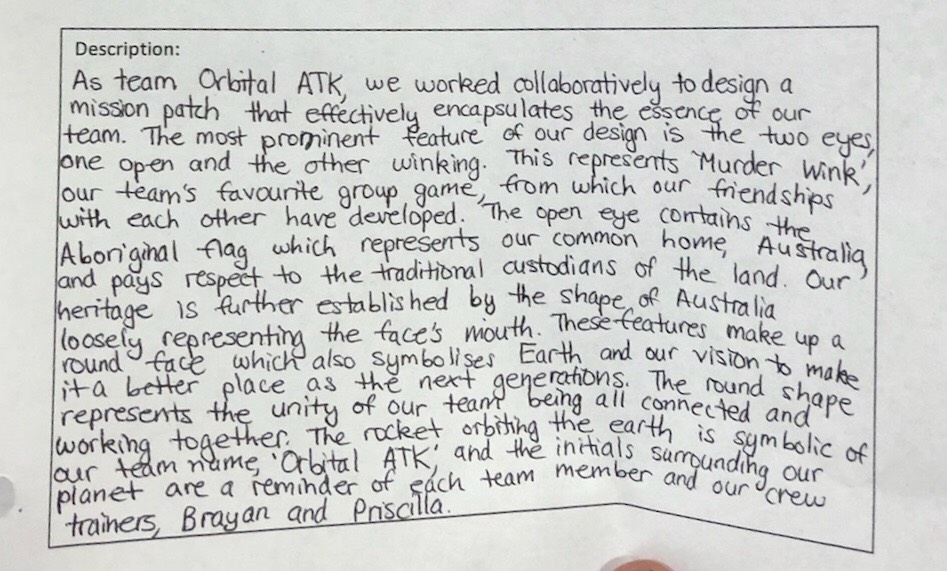 Description:
As team Orbital ATK, we worked collaboratively to design a
mission patch that effectively encapsulates the essence of our
team. The most prominent feature of our design is the two eyes,
one open and the other winking. This represents 'Murder Wink',
our team's favourite group game, from which our friendships
with each other have developed. The open eye contains the
Aboriginal flag which represents our common home, Australia,
and pays respect to the traditional custodians of the land. Our
heritage is further established by the shape of Australia
loosely representing the face's mouth. These features make up a
round face which also symbolises Earth and our vision to make
it a better place as the next generations. The round shape
represents the unity of our team being all connected and
working together. The rocket orbiting the earth is symbolic of
our team name, 'Orbital ATK', and the initials surrounding our
planet are a reminder of each team member and our crew
trainers, Brayan and Priscilla.